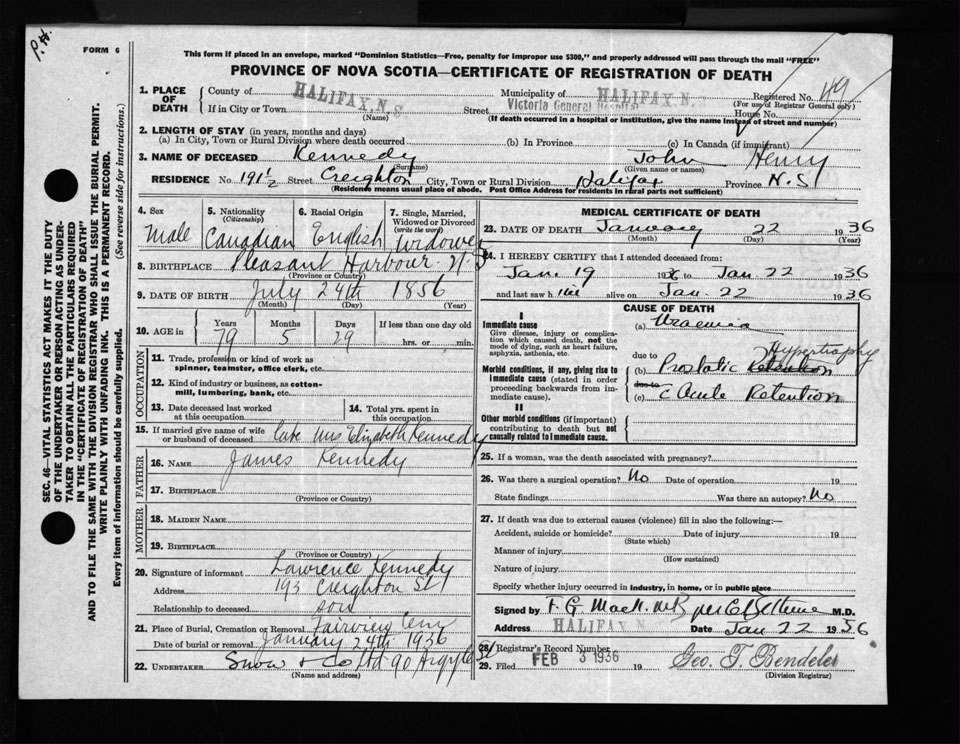 P.H.
FORM 6
This form if placed in an envelope, marked "Dominion Statistics—Free, penalty for improper use $300," and properly addressed will pass through the mail "FREE"
PROVINCE OF NOVA SCOTIA—CERTIFICATE OF REGISTRATION OF DEATH
SEC. 46—VITAL STATISTICS ACT MAKES IT THE DUTY
OF THE UNDERTAKER OR PERSON ACTING AS UNDER-
TAKER TO OBTAIN ALL THE PARTICULARS REQUIRED
IN THE "CERTIFICATE OF REGISTRATION OF DEATH"
AND TO FILE THE SAME WITH THE DIVISION REGISTRAR WHO SHALL ISSUE THE BURIAL PERMIT.
WRITE PLAINLY WITH UNFADING INK. THIS IS A PERMANENT RECORD.
Every item of information should be carefully supplied. (See reverse side for instructions.)
1. PLACE OF DEATH
County of HALIFAX, N.S. Municipality of HALIFAX, N. Registered No. 49
(For use of Registrar General only)
If in City or Town (Name) Street Victoria General Hospital House No.
(If death occurred in a hospital or institution, give the name instead of street and number)
2. LENGTH OF STAY (in years, months and days)
(a) In City, Town or Rural Division where death occurred (b) In Province (c) In Canada (if immigrant)
3. NAME OF DECEASED Kennedy John Henry
(Surname) (Given name or names)
RESIDENCE No 191½ Street Creighton City, Town or Rural Division Halifax Province N.S
(Residence means usual place of abode. Post Office Address for residents in rural parts not sufficient)
4. Sex Male
5. Nationality (Citizenship) Canadian
6. Racial Origin English
7. Single, Married, Widowed or Divorced (write the word) Widower
8. BIRTHPLACE Pleasant Harbour N.S
(Province or Country)
9. DATE OF BIRTH July 24th 1856
(Month) (Day) (Year)
10. AGE in Years Months Days If less than one day old
79 5 29 hrs. or min.
OCCUPATION
11. Trade, profession or kind of work as spinner, teamster, office clerk, etc.
12. Kind of industry or business, as cotton-mill, lumbering, bank, etc.
13. Date deceased last worked at this occupation
14. Total yrs. spent in this occupation
15. If married give name of wife or husband of deceased Late Mrs Elizabeth Kennedy
FATHER
16. NAME James Kennedy
17. BIRTHPLACE
(Province or Country)
MOTHER
18. MAIDEN NAME
19. BIRTHPLACE
(Province or Country)
20. Signature of informant Lawrence Kennedy
Address 193 Creighton St
Relationship to deceased son
21. Place of Burial, Cremation or Removal Fairview Cem
Date of burial or removal January 24th 1936
22. UNDERTAKER Snow & Co Ltd 90 Argyle St
(Name and address)
MEDICAL CERTIFICATE OF DEATH
23. DATE OF DEATH January 22 1936
(Month) (Day) (Year)
24. I HEREBY CERTIFY that I attended deceased from:
Jan. 19 1936 to Jan 22 1936
and last saw h im alive on Jan. 22 1936
CAUSE OF DEATH
I
Immediate cause
Give disease, injury or complication which caused death, not the mode of dying, such as heart failure, asphyxia, asthenia, etc.
(a) Uraemia
due to Hypertrophy
Morbid conditions, if any, giving rise to immediate cause (stated in order proceeding backwards from immediate cause).
(b) Prostatic Retention
due to
(c) c Acute Retention
II
Other morbid conditions (if important) contributing to death but not causally related to immediate cause.
25. If a woman, was the death associated with pregnancy?
26. Was there a surgical operation? No Date of operation 19
State findings Was there an autopsy? No
27. If death was due to external causes (violence) fill in also the following:—
Accident, suicide or homicide? Date of injury 19
(State which)
Manner of injury
(How sustained)
Nature of injury
Specify whether injury occurred in industry, in home, or in public place
Signed by per M.D.
Address HALIFAX N. Date Jan 22 1936
28. Registrar's Record Number
29. Filed FEB 3 1936 19 Geo. T. Bendeler
(Division Registrar)